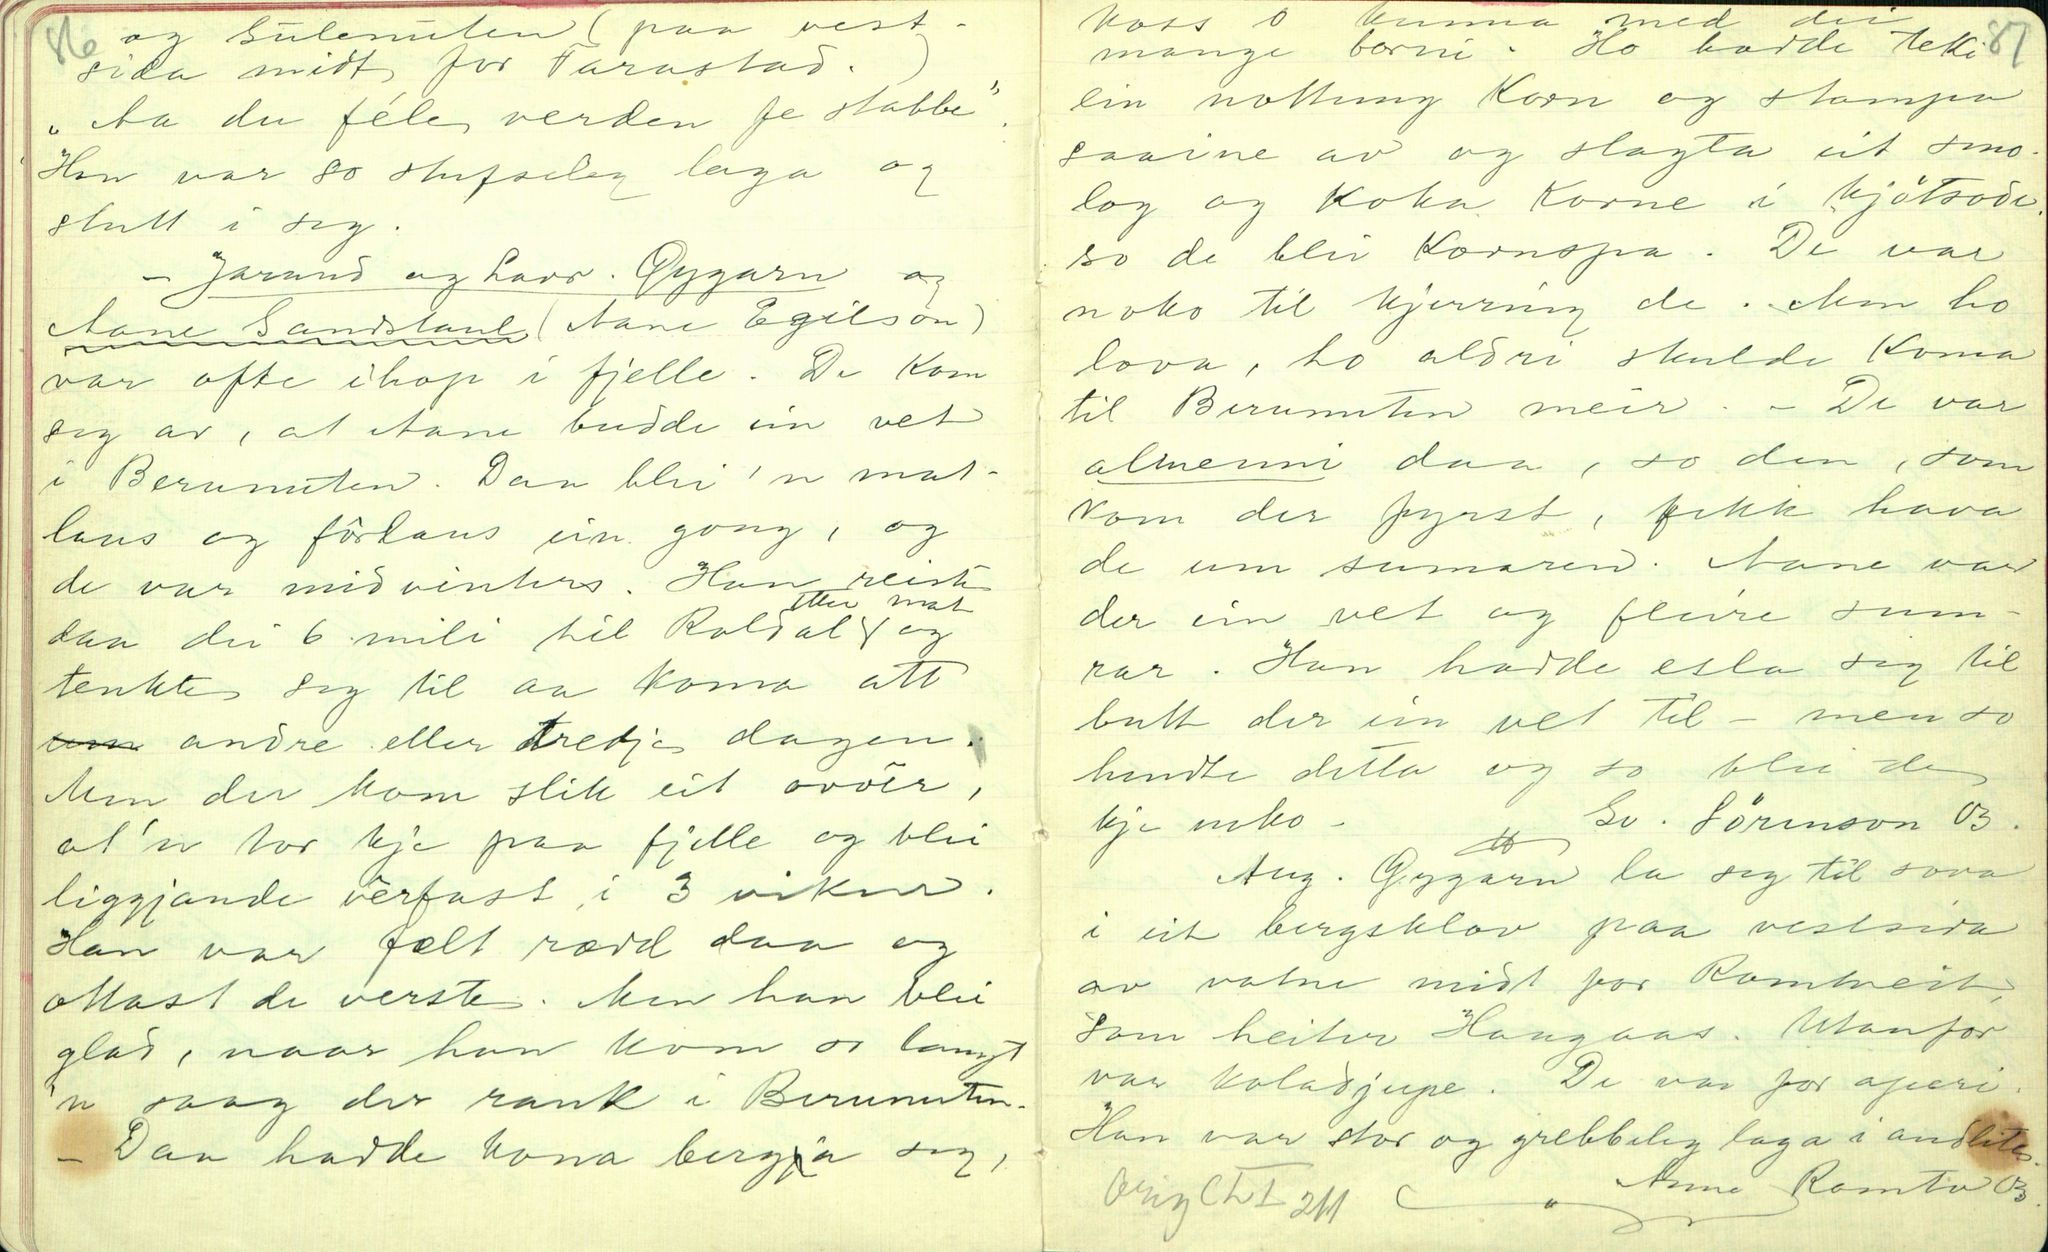 86
og Gulenuten (paa vest-
sida midt for Tarastad.)
"Aa du féle verden fe stabbe".
Han var so stufseleg laga og
stutt i seg.
- Jarand og Lavr. Gygarn og
Aane Sandstaul (Aane Egilson)
var ofte ihop i fjelle. De kom
seg av, at Aane budde ein vet
i Berunuten. Daa blei 'n mat-
laus og fôrlaus ein gong, og
de var midvinters. Han reiste
etter mat
daa dei 6 mili til Roldal og
tenkte seg til aa koma att
andre eller tredje dagen.
Men der kom slik eit ovvêr,
at 'n tor kje paa fjelle og blei
liggjande vêrfast i 3 vikur.
Han var fælt rædd daa og
ottast de verste. Men han blei
glad, naar han kom so langt
'n saag der rauk i Berunuten.
- Daa hadde kona bergja seg,
87
koss o kunna med dei
mange borni. Ho hadde teki
ein nottung Korn og stampa
saaine av og slagta eit smo-
log og koka korne i kjötsodi.
so de blei Kornspa. De var
noko til kjerring de. Men ho
lova, ho aldri skulde koma
til Berunuten meir. - De var
almenni daa, so den, som
kom der fyrst, fekk hava
de um sumaren. Aane var
der ein vet og fleire sum-
rar. Han hadde esla seg til
butt der ein vet til - men so
hendte detta og so blei de
kje noko - Sv. Sörenson 03.
Aug. Gygarn la seg til sova
i eit bergsklov paa vestsida
av vatne midt for Romtveit,
som heiter Haugaas. Utanfor
var koladjupe. De var for aperi.
Han var stor og grebbeleg laga i andlite.
Anne Romtv 03.
Orig CTI 211